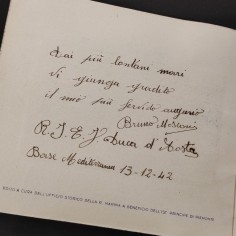 Dai più lontani mari
Vi giunga gradito
il mio più fervido augurio
Bruno
R. I. E. Duca d'Aosta
Base Mediterranea 13-12-42
EDITO A CURA DELL'UFFICIO STORICO DELLA R. MARINA A BENEFICIO DELL'IST. ORFANI DI MARINAI